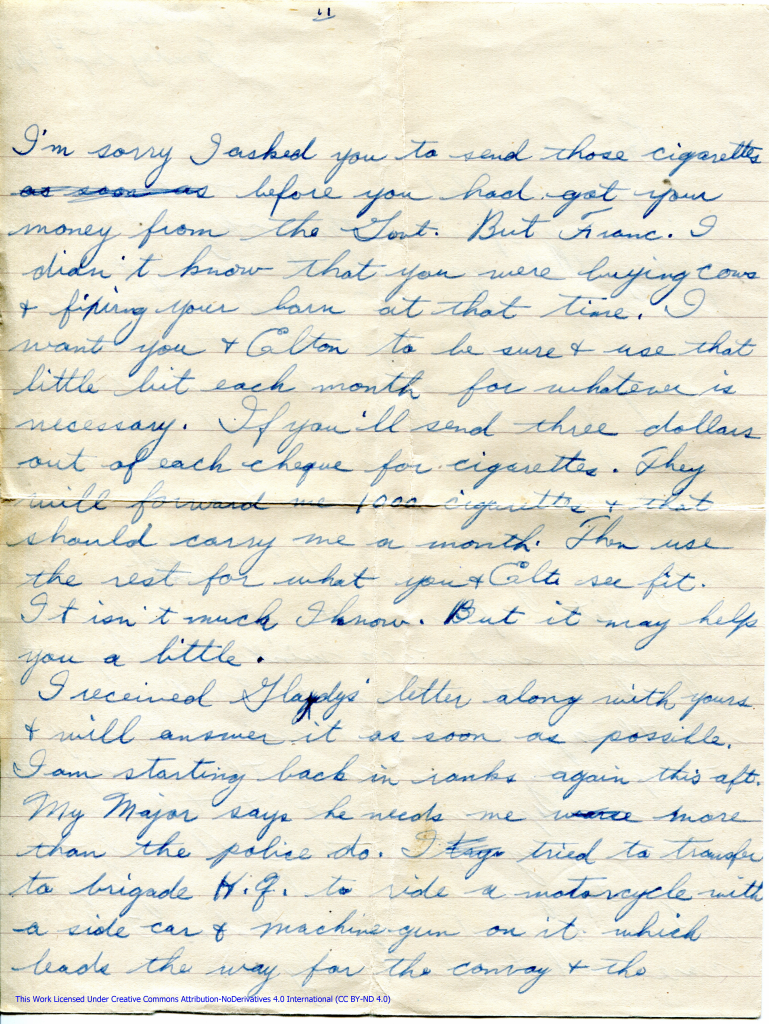 11
I'm sorry I asked you to send those cigarettes
as soon as before you had got your
money from the Govt. But Franc. I
didn't know that you were buying cows
& fixing your barn at that time. I
want you & Elton to be sure & use that
little bit each month for whatever is
necessary. If you'll send three dollars
out of each cheque for cigarettes. They
will forward me 1000 cigarettes & that
should carry me a month. Then use
the rest for what you & Elt see fit.
It isn't much I know. But it may help
you a little.
I received Gladys' letter along with yours
& will answer it as soon as possible.
I am starting back in ranks again this aft.
My Major says he needs me more
than the police do. I tried to transfer
to brigade H.Q. to ride a motorcycle with
a side car & machine gun on it which
leads the way for the convoy & the
This Work Licensed Under Creative Commons Attribution-NoDerivatives 4.0 International (CC BY-ND 4.0)